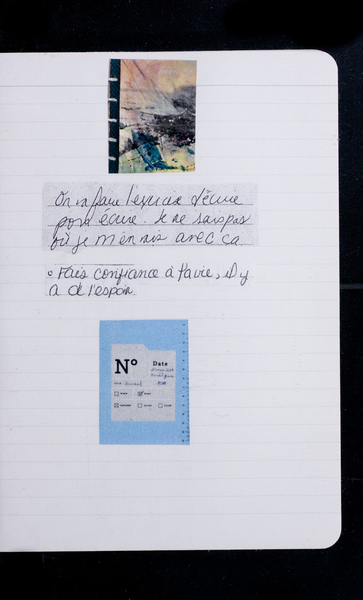 On va faire l'exercice d'écrire
pour écrire. Je ne sais pas
où je m'en vais avec ça
Fais confiance à la vie, il y
a de l'espoir.
N° Date